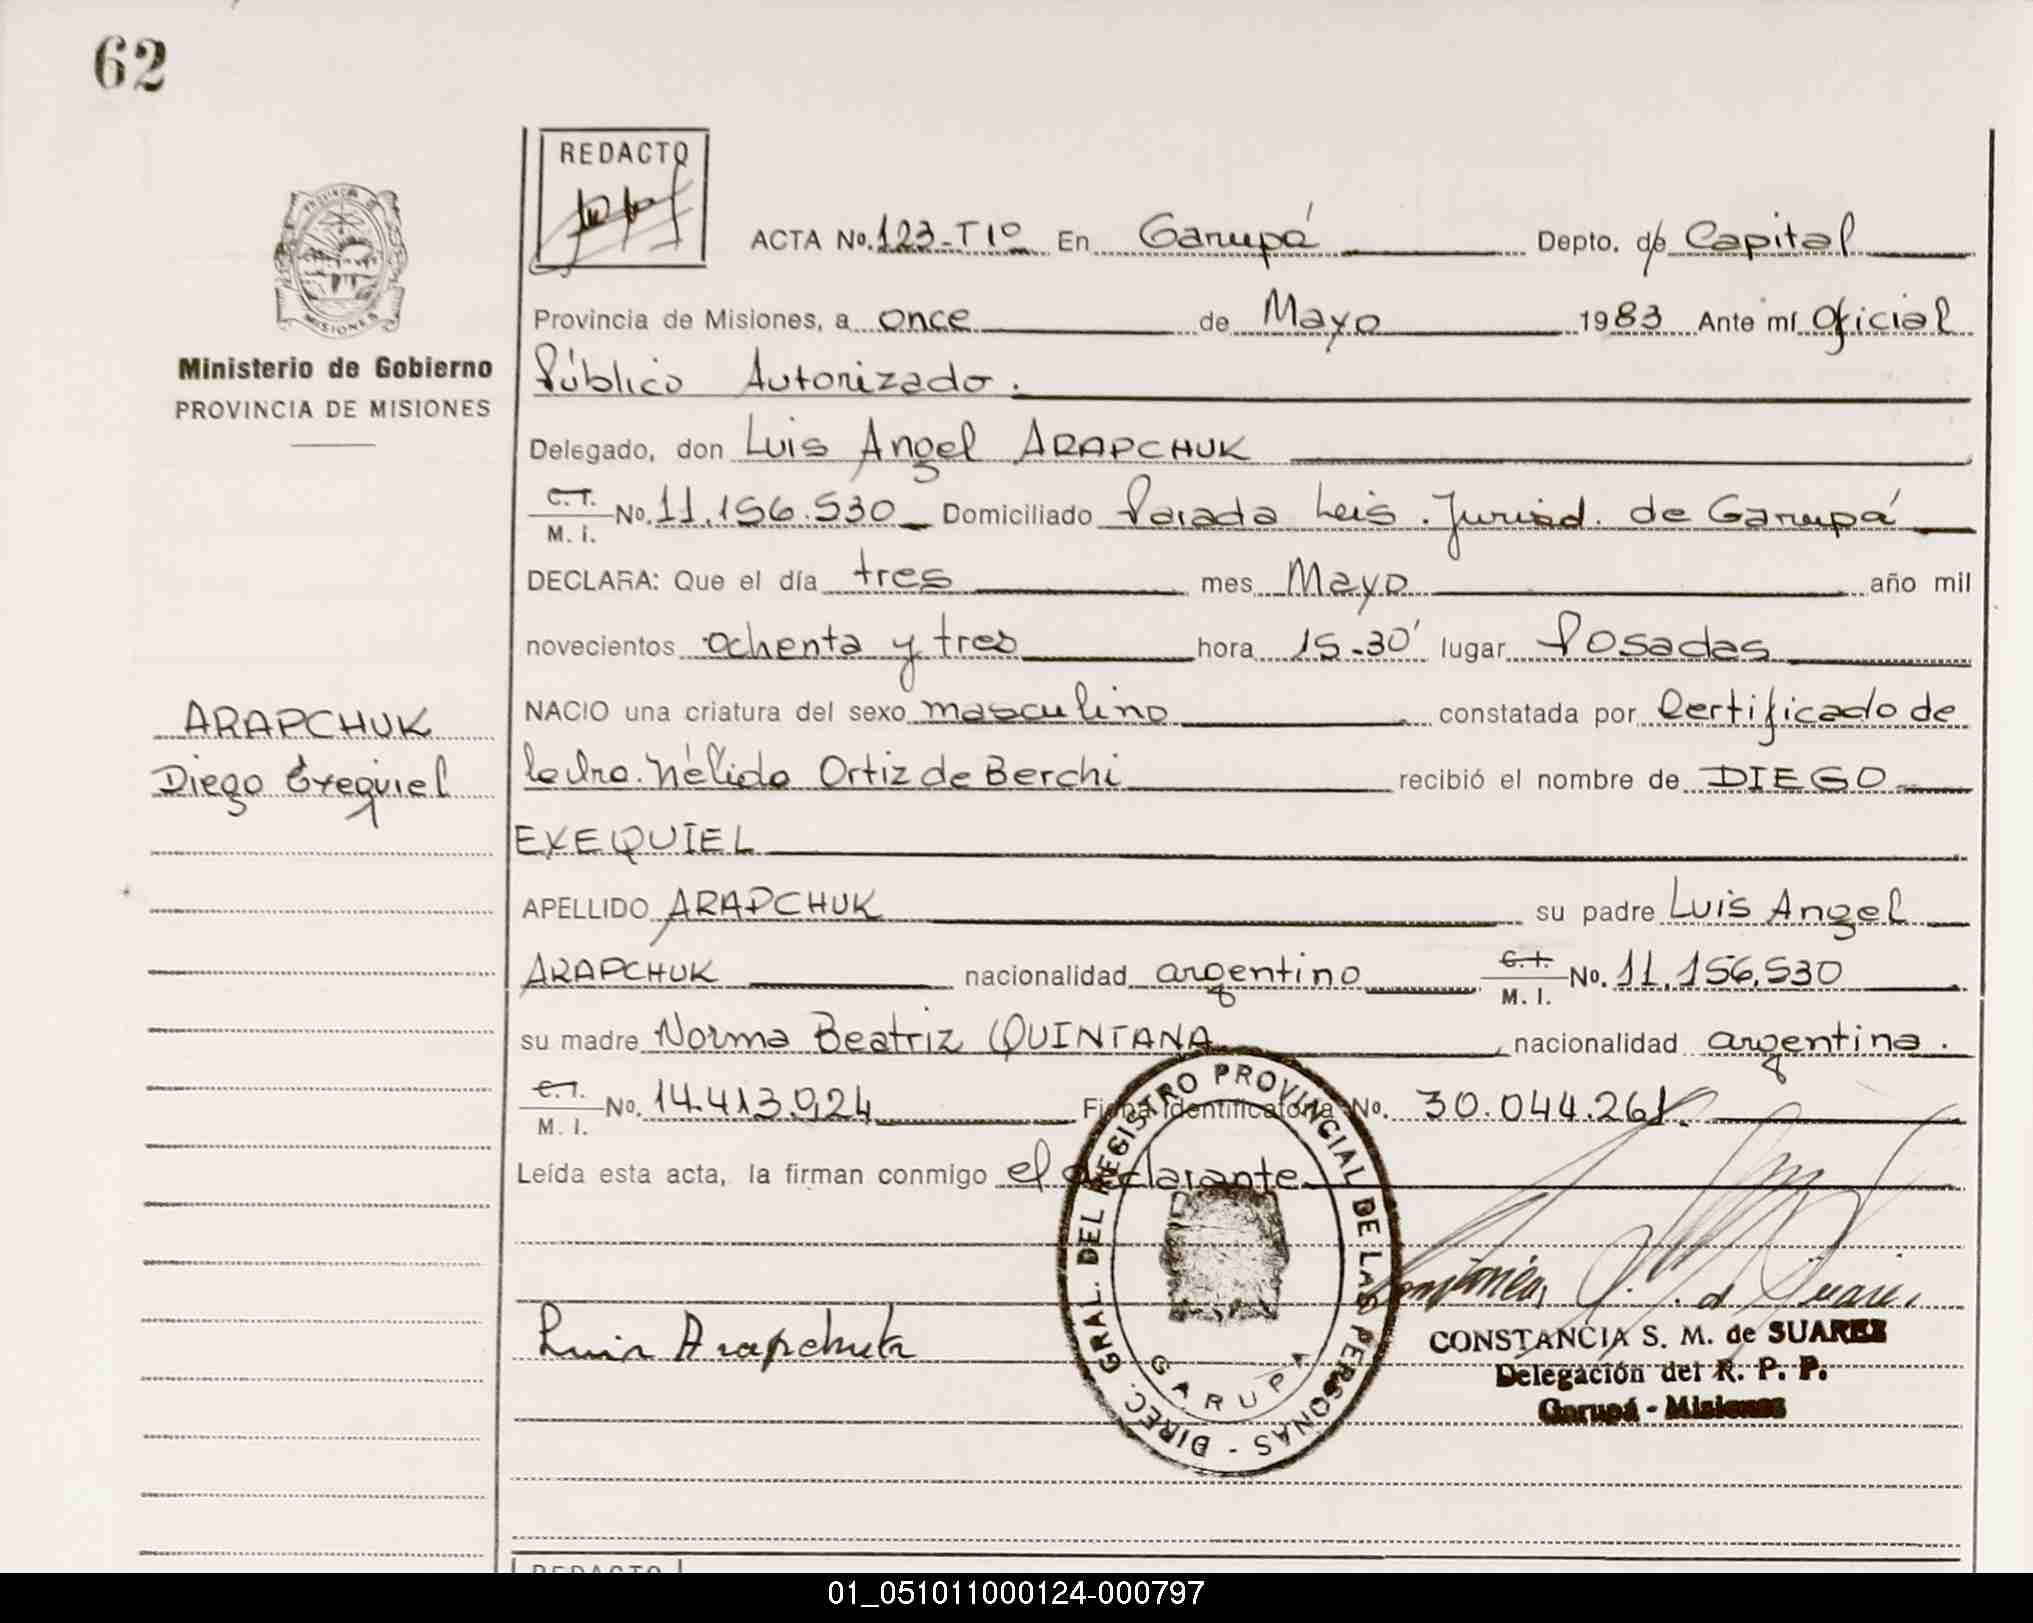 62
REDACTO
PROVINCIA DE
MISIONES
Ministerio de Gobierno
PROVINCIA DE MISIONES
ACTA No. 123-T1º En Garupá Depto. de Capital
Provincia de Misiones, a once de Mayo 1983 Ante mí Oficial
Público Autorizado.
Delegado, don Luis Angel ARAPCHUK
C.I. M. I. No. 11.156.530 Domiciliado Parada Leis. Jurisd. de Garupá
DECLARA: Que el día tres mes Mayo año mil
novecientos ochenta y tres hora 15-30' lugar Posadas
NACIO una criatura del sexo masculino constatada por Certificado de
la Dra. Nélida Ortiz de Berchi recibió el nombre de DIEGO
EXEQUIEL
ARAPCHUK
Diego Exequiel
APELLIDO ARAPCHUK su padre Luis Angel
ARAPCHUK nacionalidad argentino C.I. M. I. No. 11.156.530
su madre Norma Beatriz QUINTANA nacionalidad argentina.
C.I. M. I. No. 14.413.924 Ficha Identificatoria No. 30.044.261.
Leída esta acta, la firman conmigo el declarante
DIREC. GRAL. DEL REGISTRO PROVINCIAL DE LAS PERSONAS -
GARUPA
Luis Arapchuk
CONSTANCIA S. M. de SUAREZ
Delegación del R. P. P.
Garupá - Misiones
REDACTO
01_051011000124-000797